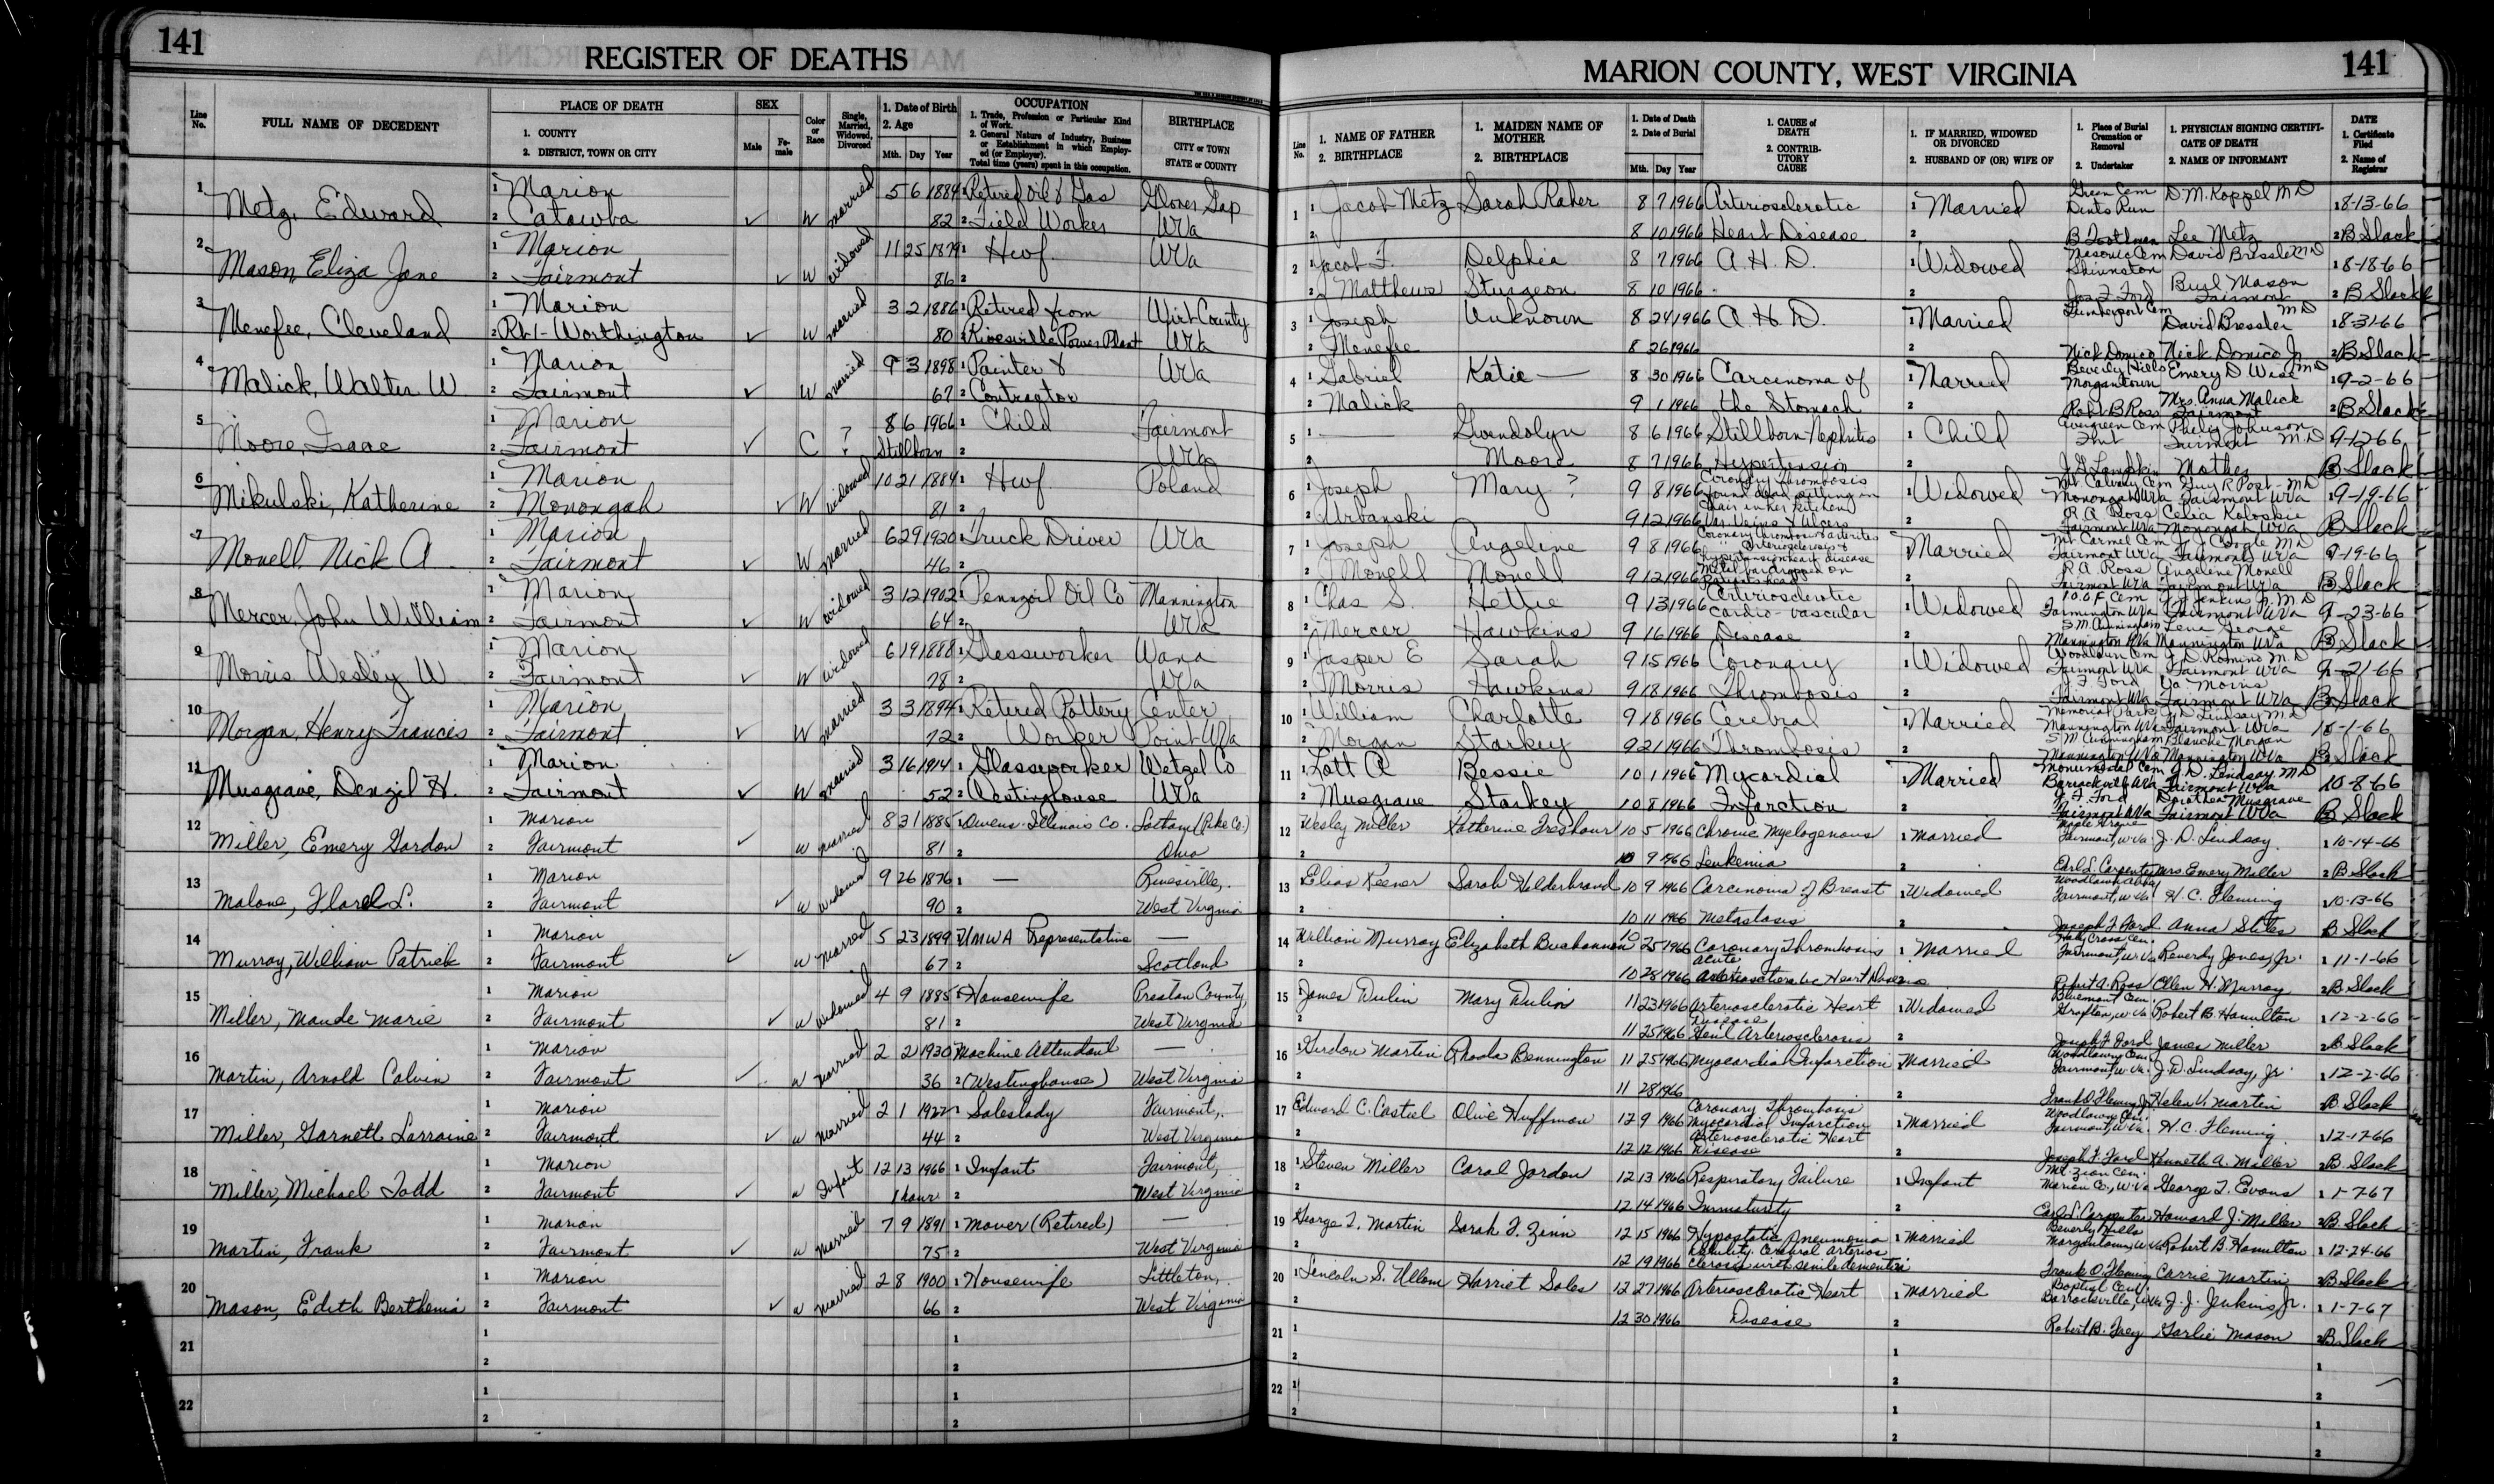 141
REGISTER OF DEATHS
Line No.
FULL NAME OF DECEDENT
PLACE OF DEATH
1. COUNTY
2. DISTRICT, TOWN OR CITY
SEX
Male
Female
Color or Race
Single, Married, Widowed, Divorced
1. Date of Birth
2. Age
Mth. Day Year
OCCUPATION
1. Trade, Profession or Particular Kind of Work.
2. General Nature of Industry, Business or Establishment in which Employed (or Employer).
Total time (years) spent in this occupation.
BIRTHPLACE
CITY or TOWN
STATE or COUNTY
1 Metz, Edward 1 Marion 2 Catawba ✓ W Married 5 6 1884 82 1 Retired Oil & Gas 2 Field Worker Glover Gap WVa
2 Mason, Eliza Jane 1 Marion 2 Fairmont ✓ W Widowed 11 25 1879 86 1 Hwf. 2 WVa
3 Menefee, Cleveland 1 Marion 2 Rt 1 - Worthington ✓ W Married 3 2 1886 80 1 Retired from 2 Rivesville Power Plant Wirt County WVa
4 Malick, Walter W 1 Marion 2 Fairmont ✓ W Married 9 3 1898 67 1 Painter & 2 Contractor WVa
5 Moore, Isaac 1 Marion 2 Fairmont ✓ C ? ? 8 6 1966 Stillborn 1 Child 2 Fairmont WVa
6 Mikulski, Katherine 1 Marion 2 Monongah ✓ W Widowed 10 21 1884 81 1 Hwf 2 Poland
7 Monell, Nick A 1 Marion 2 Fairmont ✓ W Married 6 29 1920 46 1 Truck Driver 2 WVa
8 Mercer, John William 1 Marion 2 Fairmont ✓ W Widowed 3 12 1902 64 1 Pennzoil Oil Co 2 Mannington WVa
9 Morris Wesley W 1 Marion 2 Fairmont ✓ W Widowed 6 19 1888 78 1 Glassworker 2 Wana WVa
10 Morgan, Henry Francis 1 Marion 2 Fairmont ✓ W Married 3 3 1894 72 1 Retired Pottery 2 Worker Center Point WVa
11 Musgrave, Denzil H. 1 Marion 2 Fairmont ✓ W Married 3 16 1914 52 1 Glassworker 2 Westinghouse Wetzel Co WVa
12 Miller, Emery Gordon 1 Marion 2 Fairmont ✓ W Married 8 31 1885 81 1 Owens-Illinois Co. 2 Latham (Pike Co.) Ohio
13 Malone, Florel L. 1 Marion 2 Fairmont ✓ W Widowed 9 26 1876 90 1 — 2 Rivesville, West Virginia
14 Murray, William Patrick 1 Marion 2 Fairmont ✓ W Married 5 23 1899 67 1 UMWA Representative 2 — Scotland
15 Miller, Maude Marie 1 Marion 2 Fairmont ✓ W Widowed 4 9 1885 81 1 Housewife 2 Preston County, West Virginia
16 Martin, Arnold Calvin 1 Marion 2 Fairmont ✓ W Married 2 2 1930 36 1 Machine Attendant 2 (Westinghouse) — West Virginia
17 Miller, Garnett Lorraine 1 Marion 2 Fairmont ✓ W Married 2 1 1922 44 1 Saleslady 2 Fairmont, West Virginia
18 Miller, Michael Todd 1 Marion 2 Fairmont ✓ W Infant 12 13 1966 1 hour 1 Infant 2 Fairmont, West Virginia
19 Martin, Frank 1 Marion 2 Fairmont ✓ W Married 7 9 1891 75 1 Mover (Retired) 2 — West Virginia
20 Mason, Edith Berthenia 1 Marion 2 Fairmont ✓ W Married 2 8 1900 66 1 Housewife 2 Littleton, West Virginia
21 1 2 1 2
22 1 2 1 2
MARION COUNTY, WEST VIRGINIA
141
Line No.
1. NAME OF FATHER
2. BIRTHPLACE
1. MAIDEN NAME OF MOTHER
2. BIRTHPLACE
1. Date of Death
2. Date of Burial
Mth. Day Year
1. CAUSE of DEATH
2. CONTRIBUTORY CAUSE
1. IF MARRIED, WIDOWED OR DIVORCED
2. HUSBAND OF (OR) WIFE OF
1. Place of Burial Cremation or Removal
2. Undertaker
1. PHYSICIAN SIGNING CERTIFICATE OF DEATH
2. NAME OF INFORMANT
DATE
1. Certificate Filed
2. Name of Registrar
1 Jacob Metz Sarah Raber 8 7 1966 8 10 1966 Arteriosclerotic Heart Disease Married Green Cem Dents Run B Toothman D. M. Koppel MD Lee Metz 8-13-66 B Slack
2 Jacob F. Matthews Delphia Sturgeon 8 7 1966 8 10 1966 A. H. D. Widowed Masonic Cem Shinnston Jos. F. Ford David Bressler MD Burl Mason Fairmont 8-18-66 B Slack
3 Joseph Menefee Unknown 8 24 1966 8 26 1966 A. H. D. Married Lumberport Cem Nick Domico David Bressler MD Nick Domico Jr 8-31-66 B Slack
4 Gabriel Malick Katie — 8 30 1966 9 1 1966 Carcinoma of the Stomach Married Beverly Hills Morgantown Robt B Ross Emery D Wise MD Mrs. Anna Malick Fairmont 9-2-66 B Slack
5 — Gwendolyn Moore 8 6 1966 8 7 1966 Stillborn-Nephritis Hypertension Child Evergreen Cem Fmt J. H. Lampkin Philip Johnson Fairmont MD Mother 9-12-66 B Slack
6 Joseph Urbanski Mary ? 9 8 1966 9 12 1966 Coronary Thrombosis found dead sitting in chair in her kitchen Var. Veins & Ulcers Widowed Mt Calvary Cem Monongah WVa R. A. Ross Fairmont WVa Guy R Post - MD Fairmont WVa Celia Koloskie Monongah WVa 9-19-66 B Slack
7 Joseph Monell Angeline Monell 9 8 1966 9 12 1966 Coronary thrombosis arteritis Arteriosclerosis & hypertension heart disease Metal bar dropped on Patient's head Married Mt Carmel Cem Fairmont WVa R. A. Ross Fairmont WVa J. C. Bogle MD Fairmont WVa Angeline Monell Fairmont WVa 9-19-66 B Slack
8 Chas S. Mercer Hettie Hawkins 9 13 1966 9 16 1966 Arteriosclerotic cardio-vascular Disease Widowed I.O.O.F. Cem Farmington WVa S. M. Cunningham Mannington WVa J. J. Jenkins Jr. MD Fairmont WVa Lena George Mannington WVa 9-23-66 B Slack
9 Jasper E Morris Sarah Hawkins 9 15 1966 9 18 1966 Coronary Thrombosis Widowed Woodlawn Cem Fairmont WVa J. F. Ford Fairmont WVa J. D. Romino M.D Fairmont WVa Morris Fairmont WVa 9-21-66 B Slack
10 William Morgan Charlotte Starkey 9 18 1966 9 21 1966 Cerebral Thrombosis Married Memorial Park Mannington WVa S M Cunningham Mannington WVa J. D. Lindsay M.D Fairmont WVa Blanche Morgan Mannington WVa 10-1-66 B Slack
11 Lott A Musgrave Bessie Starkey 10 1 1966 10 8 1966 Mycordial Infarction Married Monumental Cem Barrackville WVa J. F. Ford Fairmont WVa J. D. Lindsay. MD Fairmont WVa Dorothea Musgrave Fairmont WVa 10-8-66 B Slack
12 Wesley Miller Katherine Freshour 10 5 1966 10 9 1966 Chronic Myelogenous Leukemia Married Maple Grove Fairmont, W.Va. Earl L. Carpenter J. D. Lindsay. Mrs Emery Miller 10-14-66 B Slack
13 Elias Keener Sarah Holderbrand 10 9 1966 10 11 1966 Carcinoma of Breast Metastasis Widowed Woodlawn Abbey Fairmont, W.Va. Joseph F Ford H. C. Fleming Anna Stiles 10-13-66 B Slack
14 William Murray Elizabeth Buchannon 10 25 1966 10 28 1966 Coronary Thrombosis acute Arteriosclerotic Heart Disease Married Holy Cross Cem. Fairmont, W.Va Robert A. Ross Reverdy Jones, Jr. Ellen H. Murray 11-1-66 B. Slack
15 James Dulin Mary Dulin 11 23 1966 11 25 1966 Arteriosclerotic Heart Disease Genl Arteriosclerosis Widowed Bluemont Cem. Grafton, W.Va Joseph F Ford Robert B. Hamilton James Miller 12-2-66 B. Slack
16 Girdon Martin Rhoda Bennington 11 25 1966 11 28 1966 Myocardial Infarction Married Woodlawn Cem. Fairmont, W.Va. Frank O. Fleming Jr J. D. Lindsay, Jr. Helen V. Martin 12-2-66 B. Slack
17 Edward C. Casteel Olive Huffman 12 9 1966 12 12 1966 Coronary Thrombosis Myocardial Infarction Arteriosclerotic Heart Disease Married Woodlawn Cem. Fairmont, W.Va. Joseph F. Ford H. C. Fleming Kenneth A. Miller 12-17-66 B. Slack
18 Steven Miller Carol Jordon 12 13 1966 12 14 1966 Respiratory Failure Immaturity Infant Mt. Zion Cem. Marion Co., W.Va Earl L. Carpenter George T. Evans Howard J. Miller 1-7-67 B. Slack
19 George T. Martin Sarah F. Zinn 12 15 1966 12 19 1966 Hypostatic Pneumonia Cerebral arterios clerosis with senile dementia Married Beverly Hills Morgantown, W.Va Frank O. Fleming Robert B. Hamilton Carrie Martin 12-24-66 B. Slack
20 Lincoln S. Ullom Harriet Soles 12 27 1966 12 30 1966 Arteriosclerotic Heart Disease Married Baptist Cem. Barrackville, W.Va. J. J. Jenkins, Jr. Garlie Mason 1-7-67 B. Slack
21 1 2 1 2 1 2
22 1 2 1 2 1 2